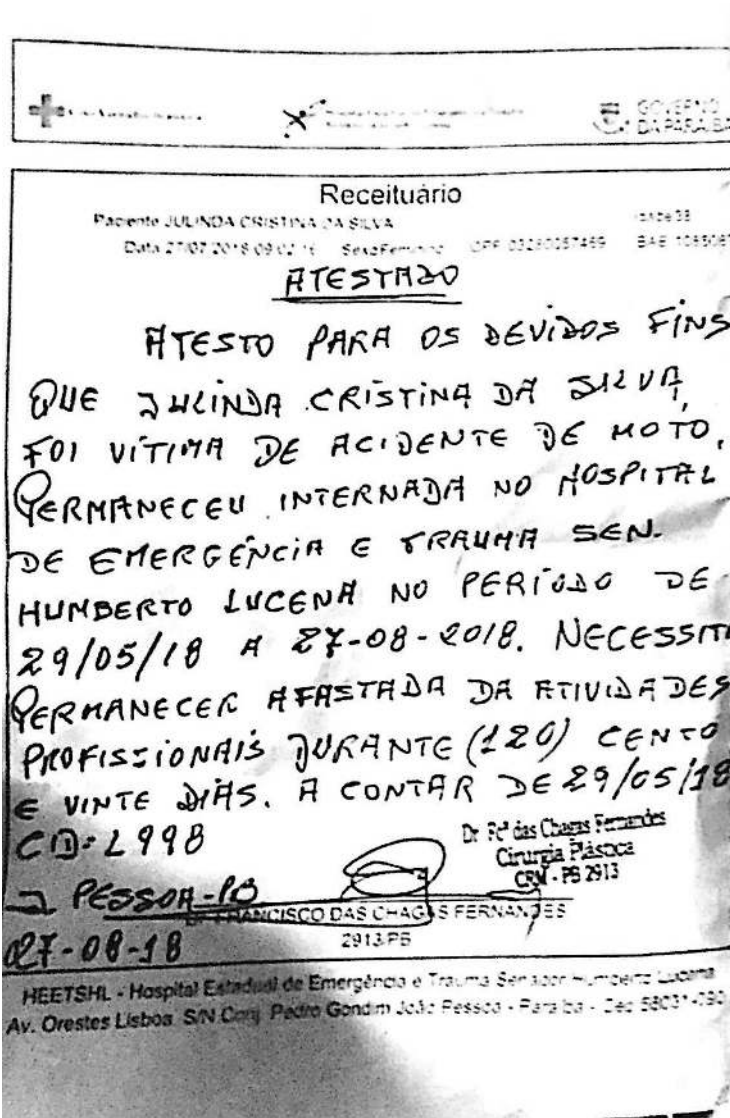 GOVERNO
DA PARAÍBA
Receituário
Paciente JULINDA CRISTINA DA SILVA
Data 27/07/2018 09:02:16 Sexo Feminino CPF 03280057469 BAE 108508
ATESTADO
ATESTO PARA OS DEVIDOS FINS
QUE JULINDA CRISTINA DA SILVA,
FOI VÍTIMA DE ACIDENTE DE MOTO,
PERMANECEU INTERNADA NO HOSPITAL
DE EMERGÊNCIA E TRAUMA SEN.
HUMBERTO LUCENA NO PERÍODO DE
29/05/18 A 27-08-2018. NECESSITA
PERMANECER AFASTADA DA ATIVIDADES
PROFISSIONAIS DURANTE (120) CENTO
E VINTE DIAS. A CONTAR DE 29/05/18
CID: L998
Dr. Fcº das Chagas Fernandes
Cirurgia Plástica
CRM - PB 2913
J PESSOA-PB
DR FRANCISCO DAS CHAGAS FERNANDES
2913/PB
027-08-18
HEETSHL - Hospital Estadual de Emergência e Trauma Senador Humberto Lucena
Av. Orestes Lisboa S/N Conj. Pedro Gondim João Pessoa - Paraíba - Cep 58031-090